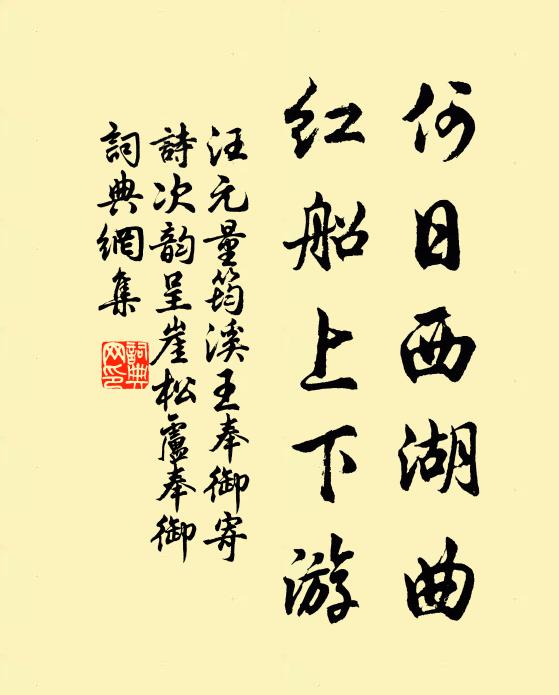 何日西湖曲
红船上下游
汪元量筠溪王奉御寄
詩次韵呈崖松盧奉御
詞典網集
詞典网印